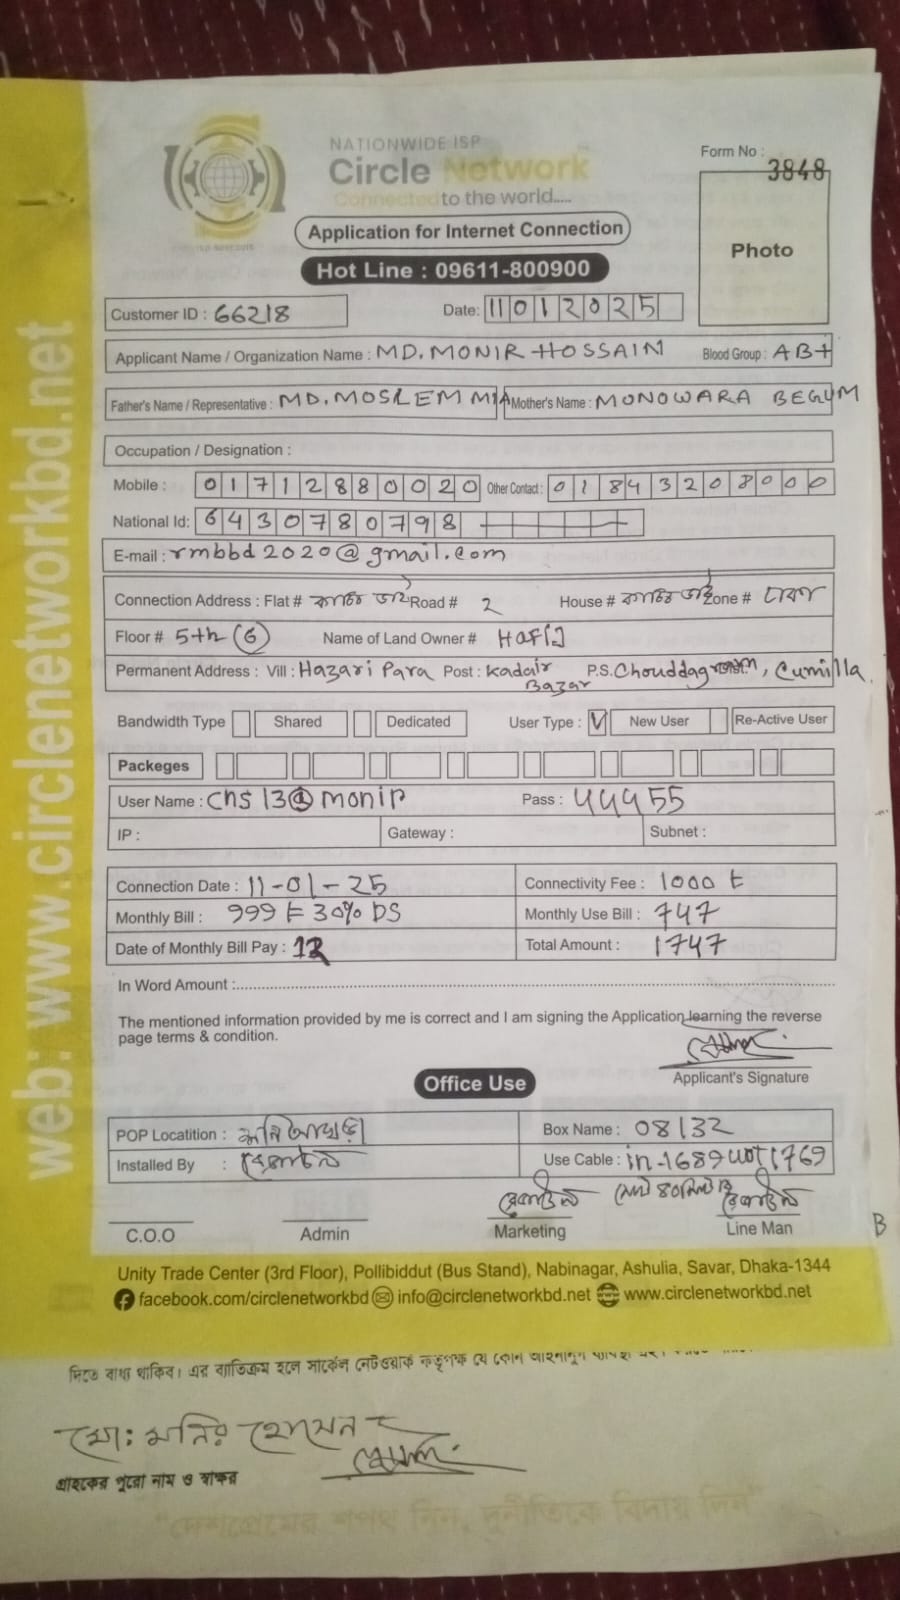 web: www.circlenetworkbd.net
NATIONWIDE ISP
Circle Network
Connected to the world.....
Form No : 3848
Photo
Application for Internet Connection
Hot Line : 09611-800900
Customer ID : 66218
Date: 11012025
Applicant Name / Organization Name : MD. MONIR HOSSAIN Blood Group : AB+
Father's Name / Representative : MD. MOSLEM MIA Mother's Name : MONOWARA BEGUM
Occupation / Designation :
Mobile : 01712880020 Other Contact : 01843208000
National Id: 6430780798
E-mail : rmbbd2020@gmail.com
Connection Address : Flat # Road # 2 House # Zone # ঢাকা
Floor # 5th (6) Name of Land Owner # Hafij
Permanent Address : Vill : Hazari Para Post : Kadair Bazar P.S. Chouddagram, Cumilla
Bandwidth Type Shared Dedicated User Type : ✓ New User Re-Active User
Packeges
User Name : Cns13@monir Pass : 44455
IP : Gateway : Subnet :
Connection Date : 11-01-25 Connectivity Fee : 1000 t
Monthly Bill : 999 t 30% DS Monthly Use Bill : 747
Date of Monthly Bill Pay : 12 Total Amount : 1747
In Word Amount :
The mentioned information provided by me is correct and I am signing the Application learning the reverse
page terms & condition.
Applicant's Signature
Office Use
POP Locatition : Box Name : 08/32
Installed By : Use Cable : in-1689 out 1769
C.O.O Admin Marketing Line Man
B
Unity Trade Center (3rd Floor), Pollibiddut (Bus Stand), Nabinagar, Ashulia, Savar, Dhaka-1344
facebook.com/circlenetworkbd info@circlenetworkbd.net www.circlenetworkbd.net
দিতে বাধ্য থাকিব। এর ব্যতিক্রম হলে সার্কেল নেটওয়ার্ক কতৃপক্ষ যে কোন
মো: মনির হোসেন
গ্রাহকের পুরো নাম ও স্বাক্ষর
"দেশপ্রেমের শপথ নিন, দুর্নীতিকে বিদায় দিন"